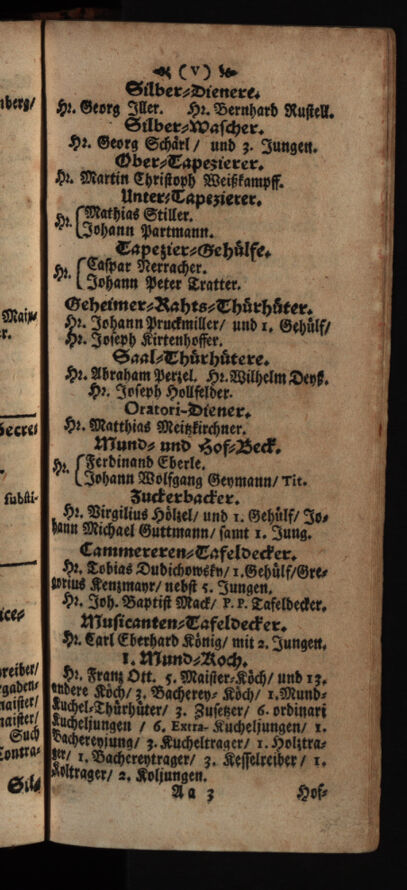 (V)
Silber-Dienere.
Hr. Georg Iller. Hr. Bernhard Rustell.
Silber-Wascher.
Hr. Georg Schärl/ und 3. Jungen.
Ober-Tapezierer.
Hr. Martin Christoph Weißkampff.
Unter-Tapezierer.
Hr. { Mathias Stiller.
Johann Partmann.
Tapezier-Gehülfe.
Hr. { Caspar Nerracher.
Johann Peter Tratter.
Geheimer-Rahts-Thürhüter.
Hr. Johann Pruckmiller/ und 1. Gehülf/
Hr. Joseph Kirtenhoffer.
Saal-Thürhütere.
Hr. Abraham Perzel. Hr. Wilhelm Deyß.
Hr. Joseph Hollfelder.
Oratori-Diener.
Hr. Matthias Meitzkirchner.
Mund- und Hof-Beck.
Hr. { Ferdinand Eberle.
Johann Wolfgang Geymann/ Tit.
Zuckerbacker.
Hr. Virgilius Hölzel/ und 1. Gehülf/ Jo-
hann Michael Guttmann/ samt 1. Jung.
Cammereren-Tafeldecker.
Hr. Tobias Dudichowsky/ 1. Gehülf/ Gre-
gorius Kenzmayr/ nebst 5. Jungen.
Hr. Joh. Baptist Mack/ P. P. Tafeldecker.
Musicanten-Tafeldecker.
Hr. Carl Eberhard König/ mit 2. Jungen.
1. Mund-Koch.
Hr. Franz Ott. 5. Maister-Köch/ und 13.
andere Köch/ 3. Bacherey-Köch/ 1. Mund-
Kuchel-Thürhüter/ 3. Zusetzer/ 6. ordinari
Kucheljungen / 6. Extra-Kucheljungen/ 1.
Bachereyjung/ 3. Kucheltrager/ 1. Holztra-
ger/ 1. Bachereytrager/ 3. Kesselreiber/ 1.
Koltrager/ 2. Koljungen.
Aa 3 Hof-
nberg/
Main-
r.
Secre-
substi-
ice-
reiber/
rgaden-
maister/
naister/
Such
Contra-
Sil-